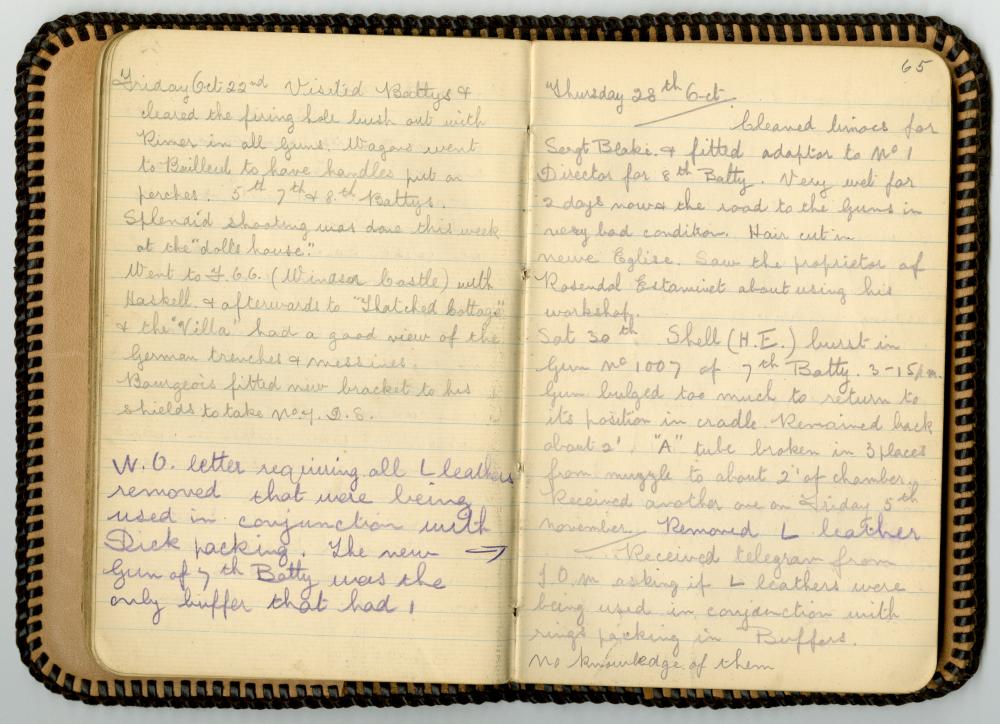 Friday Oct 22nd Visited Battys &
cleared the firing hole bush out with
Rimer in all Guns. Wagons went
to Bailleul to have handles put on
perches. 5th 7th & 8th Battys.
Splendid shooting was done this week
at the "dolls house".
Went to F.G.C. (Windsor Castle) with
Haskell. & afterwards to "Thatched Cottage"
& the "Villa" had a good view of the
German trenches & messines.
Bourgeois fitted new bracket to his
shields to take No 7. D. S.
W. O. letter requiring all L leathers
removed that were being
used in conjunction with
Dick packing. The new →
Gun of 7th Batty was the
only buffer that had 1
65
Thursday 28th Oct
Cleaned linacs for
Sergt Blake. & fitted adaptor to No 1
Director for 8th Batty. Very wet for
2 days now & the road to the Guns in
very bad condition. Hair cut in
neuve Eglise. Saw the proprietor of
Rosendal Estaminet about using his
workshop.
Sat 30th Shell (H.E.) burst in
Gun No 1007 of 7th Batty. 3-15 p.m.
Gun bulged too much to return to
its position in cradle. Remained back
about 2'. "A" tube broken in 3 places
from muzzle to about 2" of chamber.
Received another one on Friday 5th
november. Removed L leather
Received telegram from
I O M asking if L leathers were
being used in conjunction with
rings packing in Buffers.
No knowledge of them